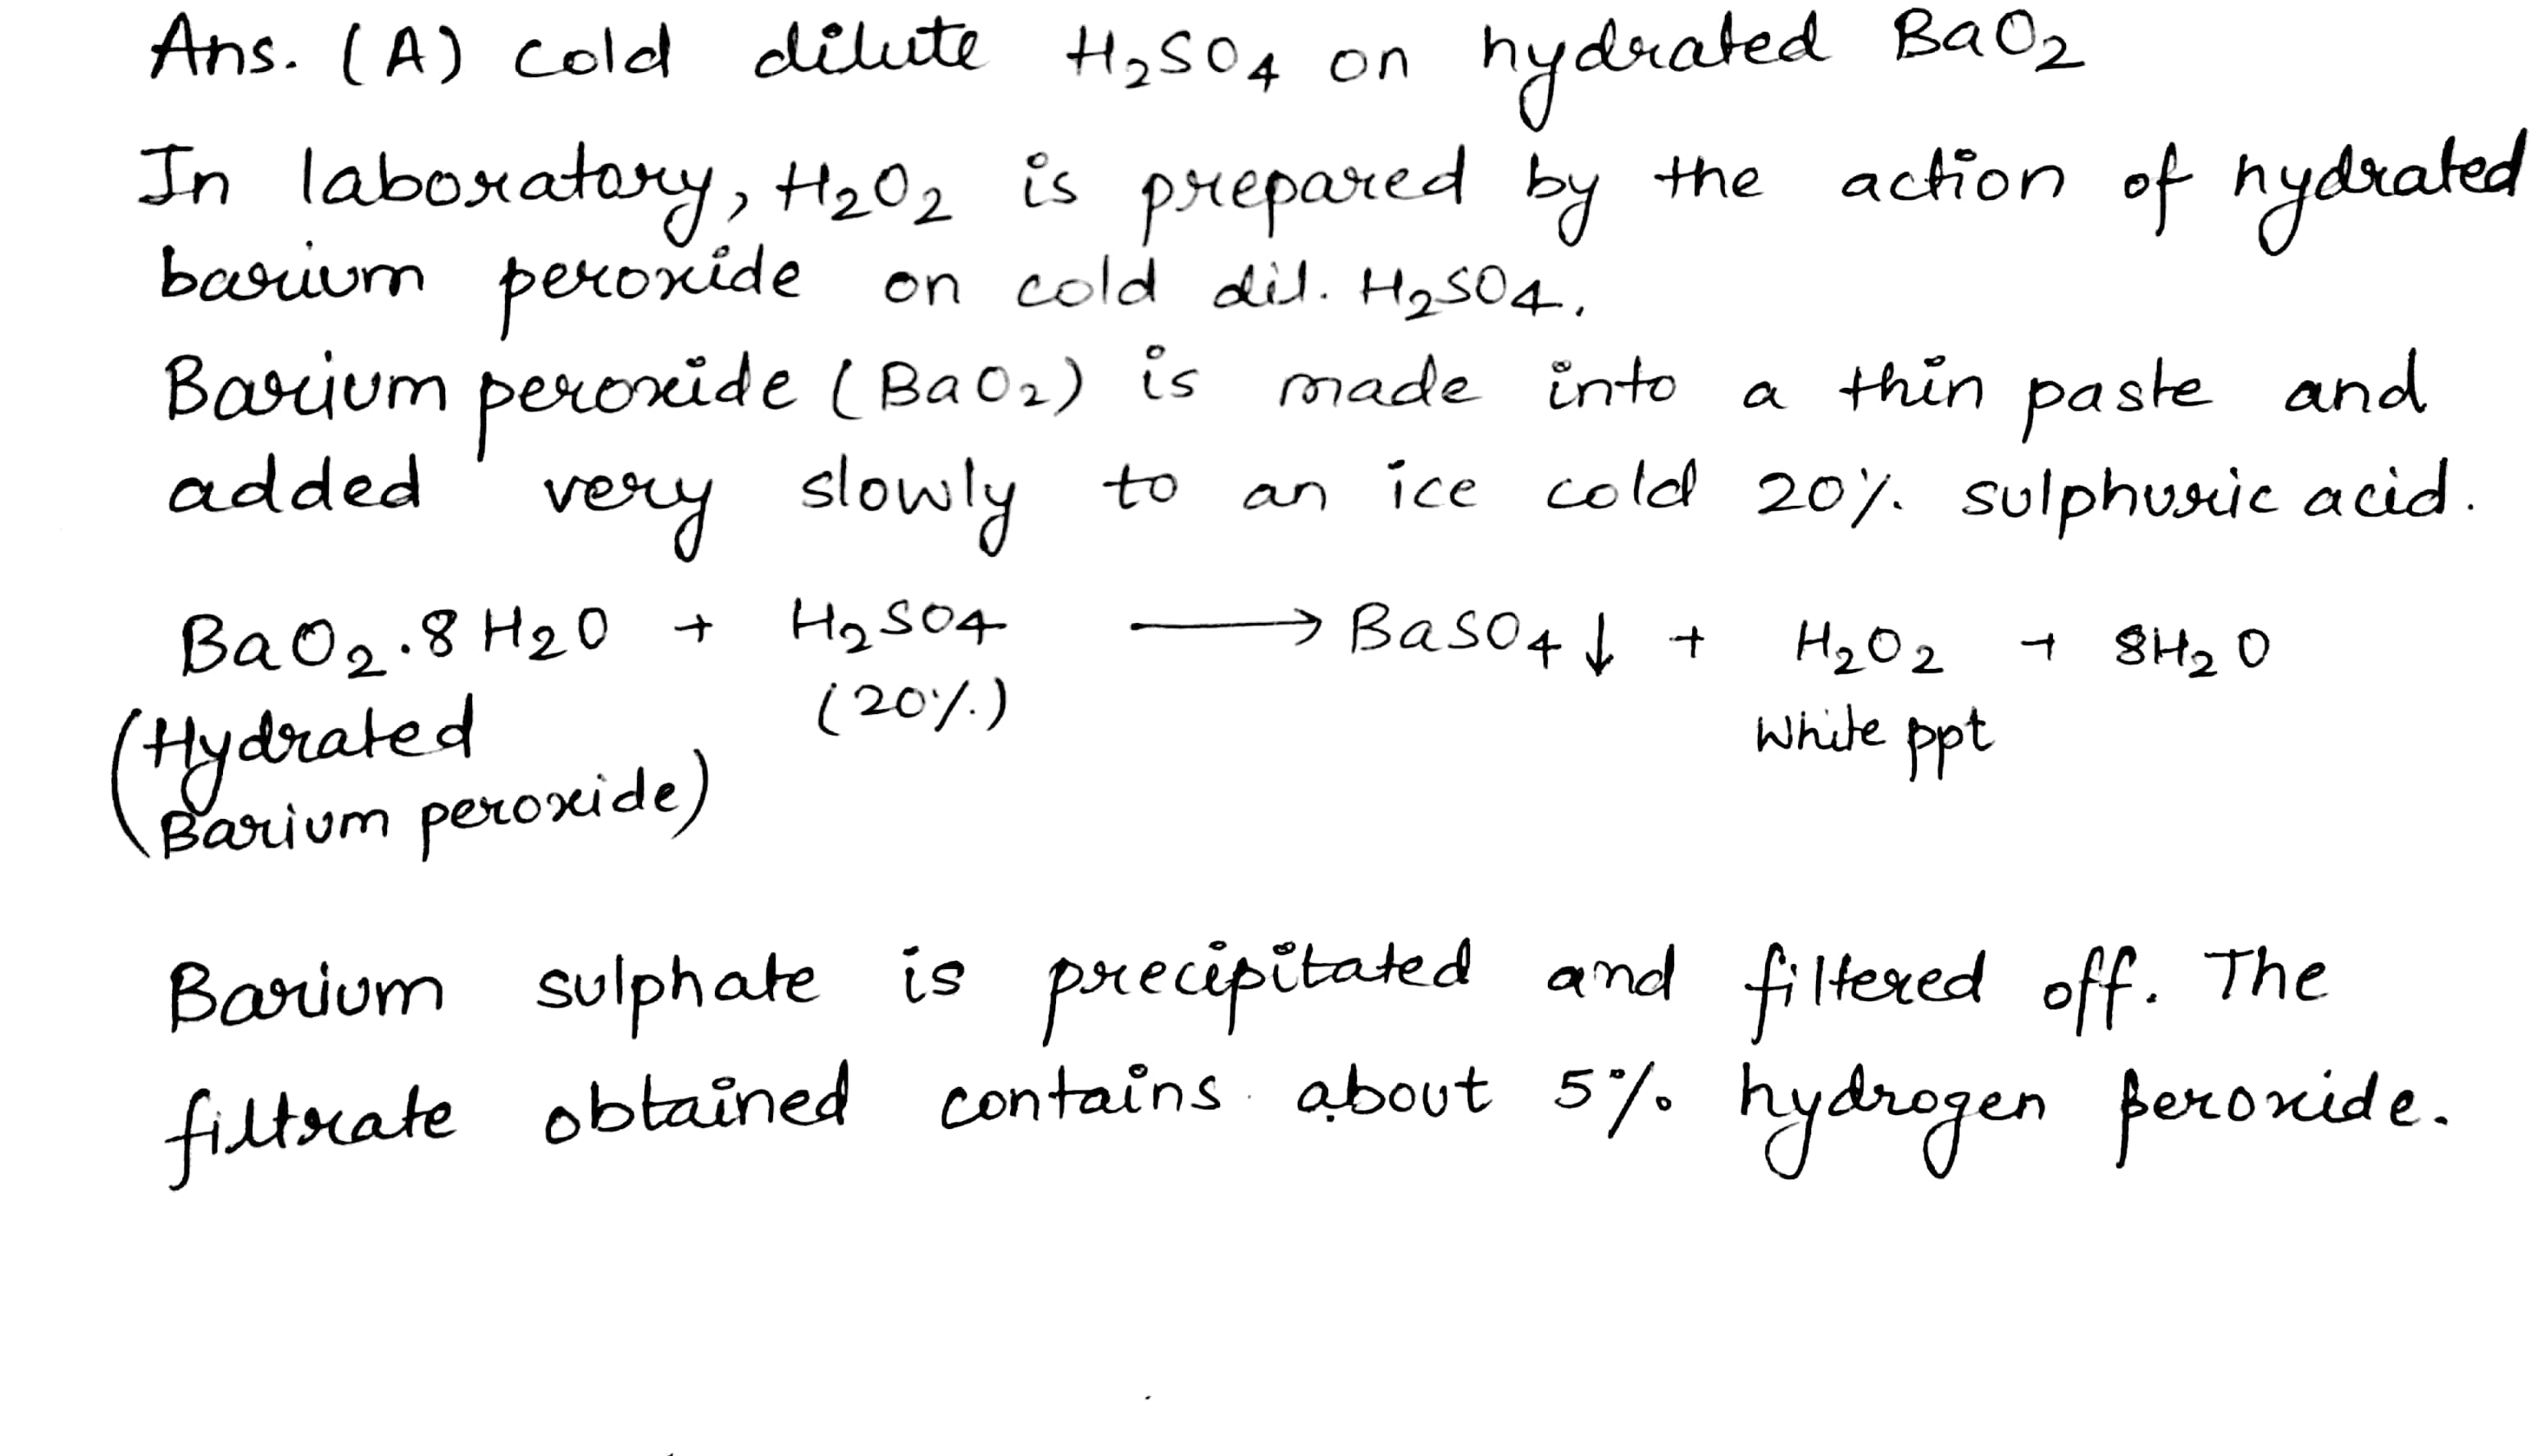 Ans. (A) cold dilute H₂SO₄ on hydrated BaO₂
In laboratory, H₂O₂ is prepared by the action of hydrated
barium peroxide on cold dil. H₂SO₄.
Barium peroxide (BaO₂) is made into a thin paste and
added very slowly to an ice cold 20% sulphuric acid.
BaO₂.8H₂O + H₂SO₄ ⟶ BaSO₄↓ + H₂O₂ + 8H₂O
(20%) White ppt
(Hydrated
Barium peroxide)
Barium sulphate is precipitated and filtered off. The
filtrate obtained contains about 5% hydrogen peroxide.